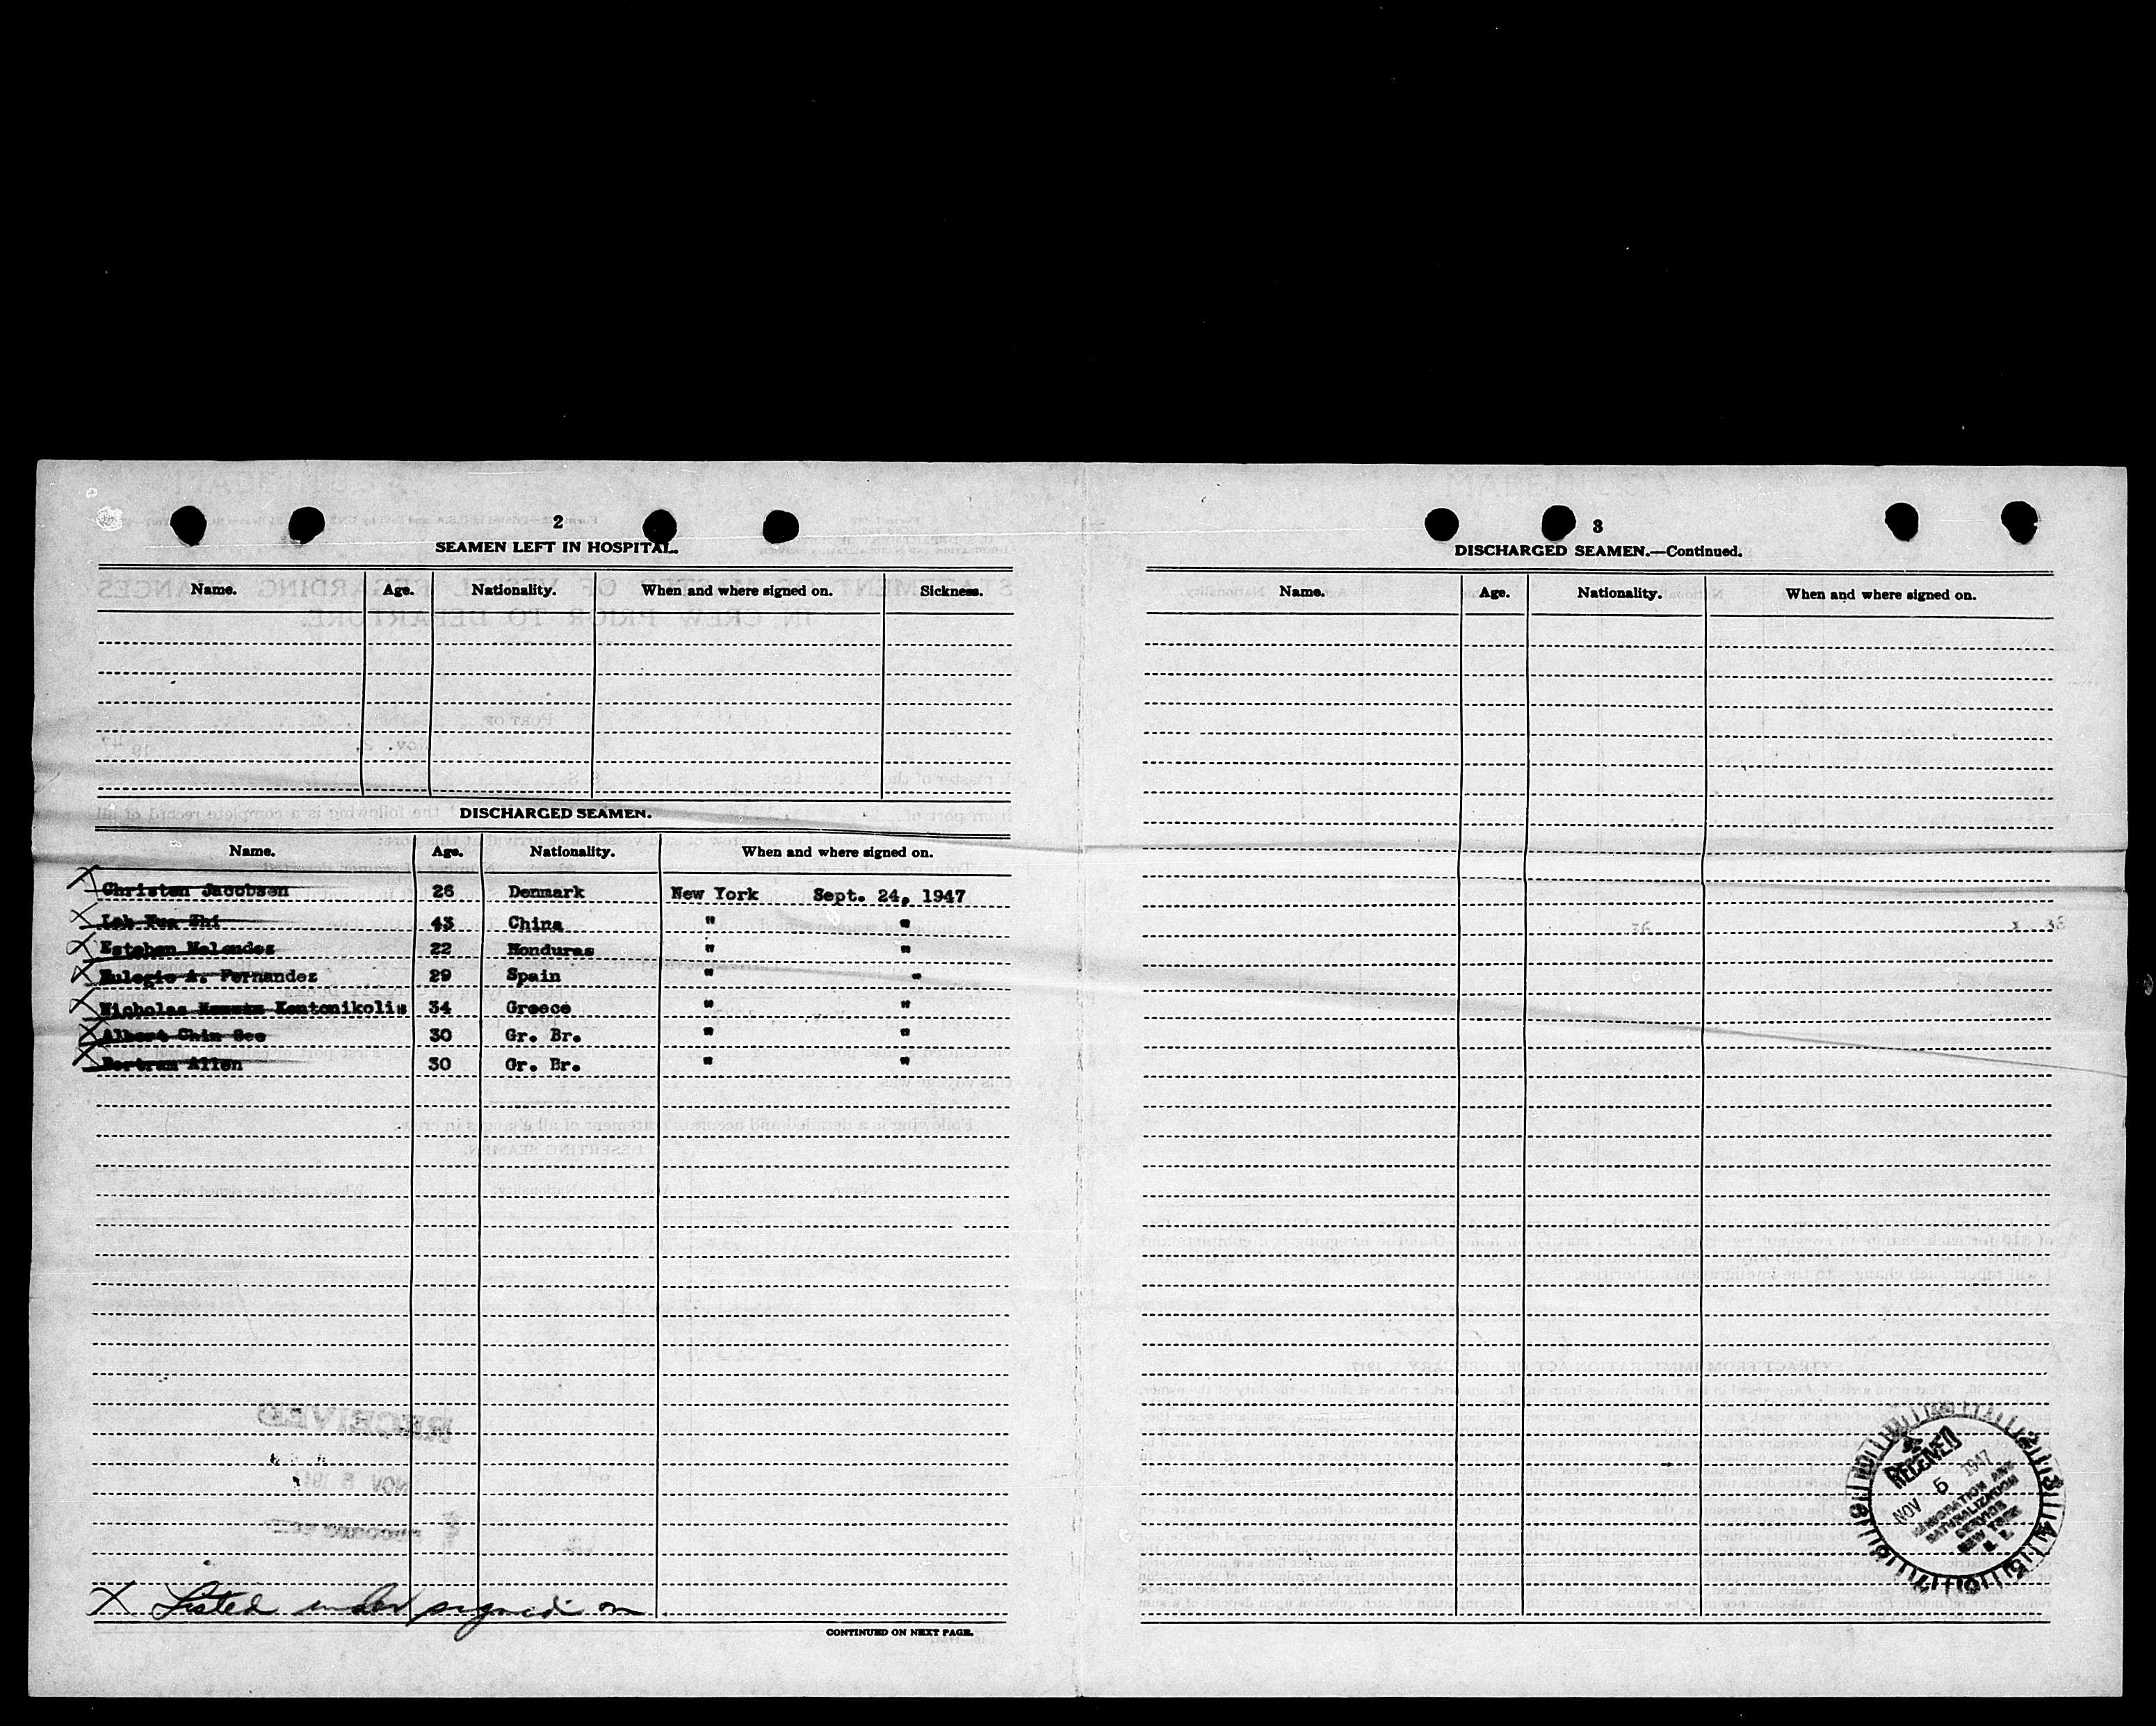 2
SEAMEN LEFT IN HOSPITAL.
Name. Age. Nationality. When and where signed on. Sickness.
DISCHARGED SEAMEN.
Name. Age. Nationality. When and where signed on.
X Christen Jacobsen 26 Denmark New York Sept. 24, 1947
X Loh 43 China " "
X Esteban Melendez 22 Honduras " "
X Eulogio A. Fernandez 29 Spain " "
X Nicholas Kontonikolis 34 Greece " "
X Albert Chin See 30 Gr. Br. " "
X Bertram Allen 30 Gr. Br. " "
X Listed under signed on
CONTINUED ON NEXT PAGE.
3
DISCHARGED SEAMEN.—Continued.
Name. Age. Nationality. When and where signed on.
RECEIVED
NOV 5 1947
IMMIGRATION AND
NATURALIZATION
SERVICE
NEW YORK
N. Y.